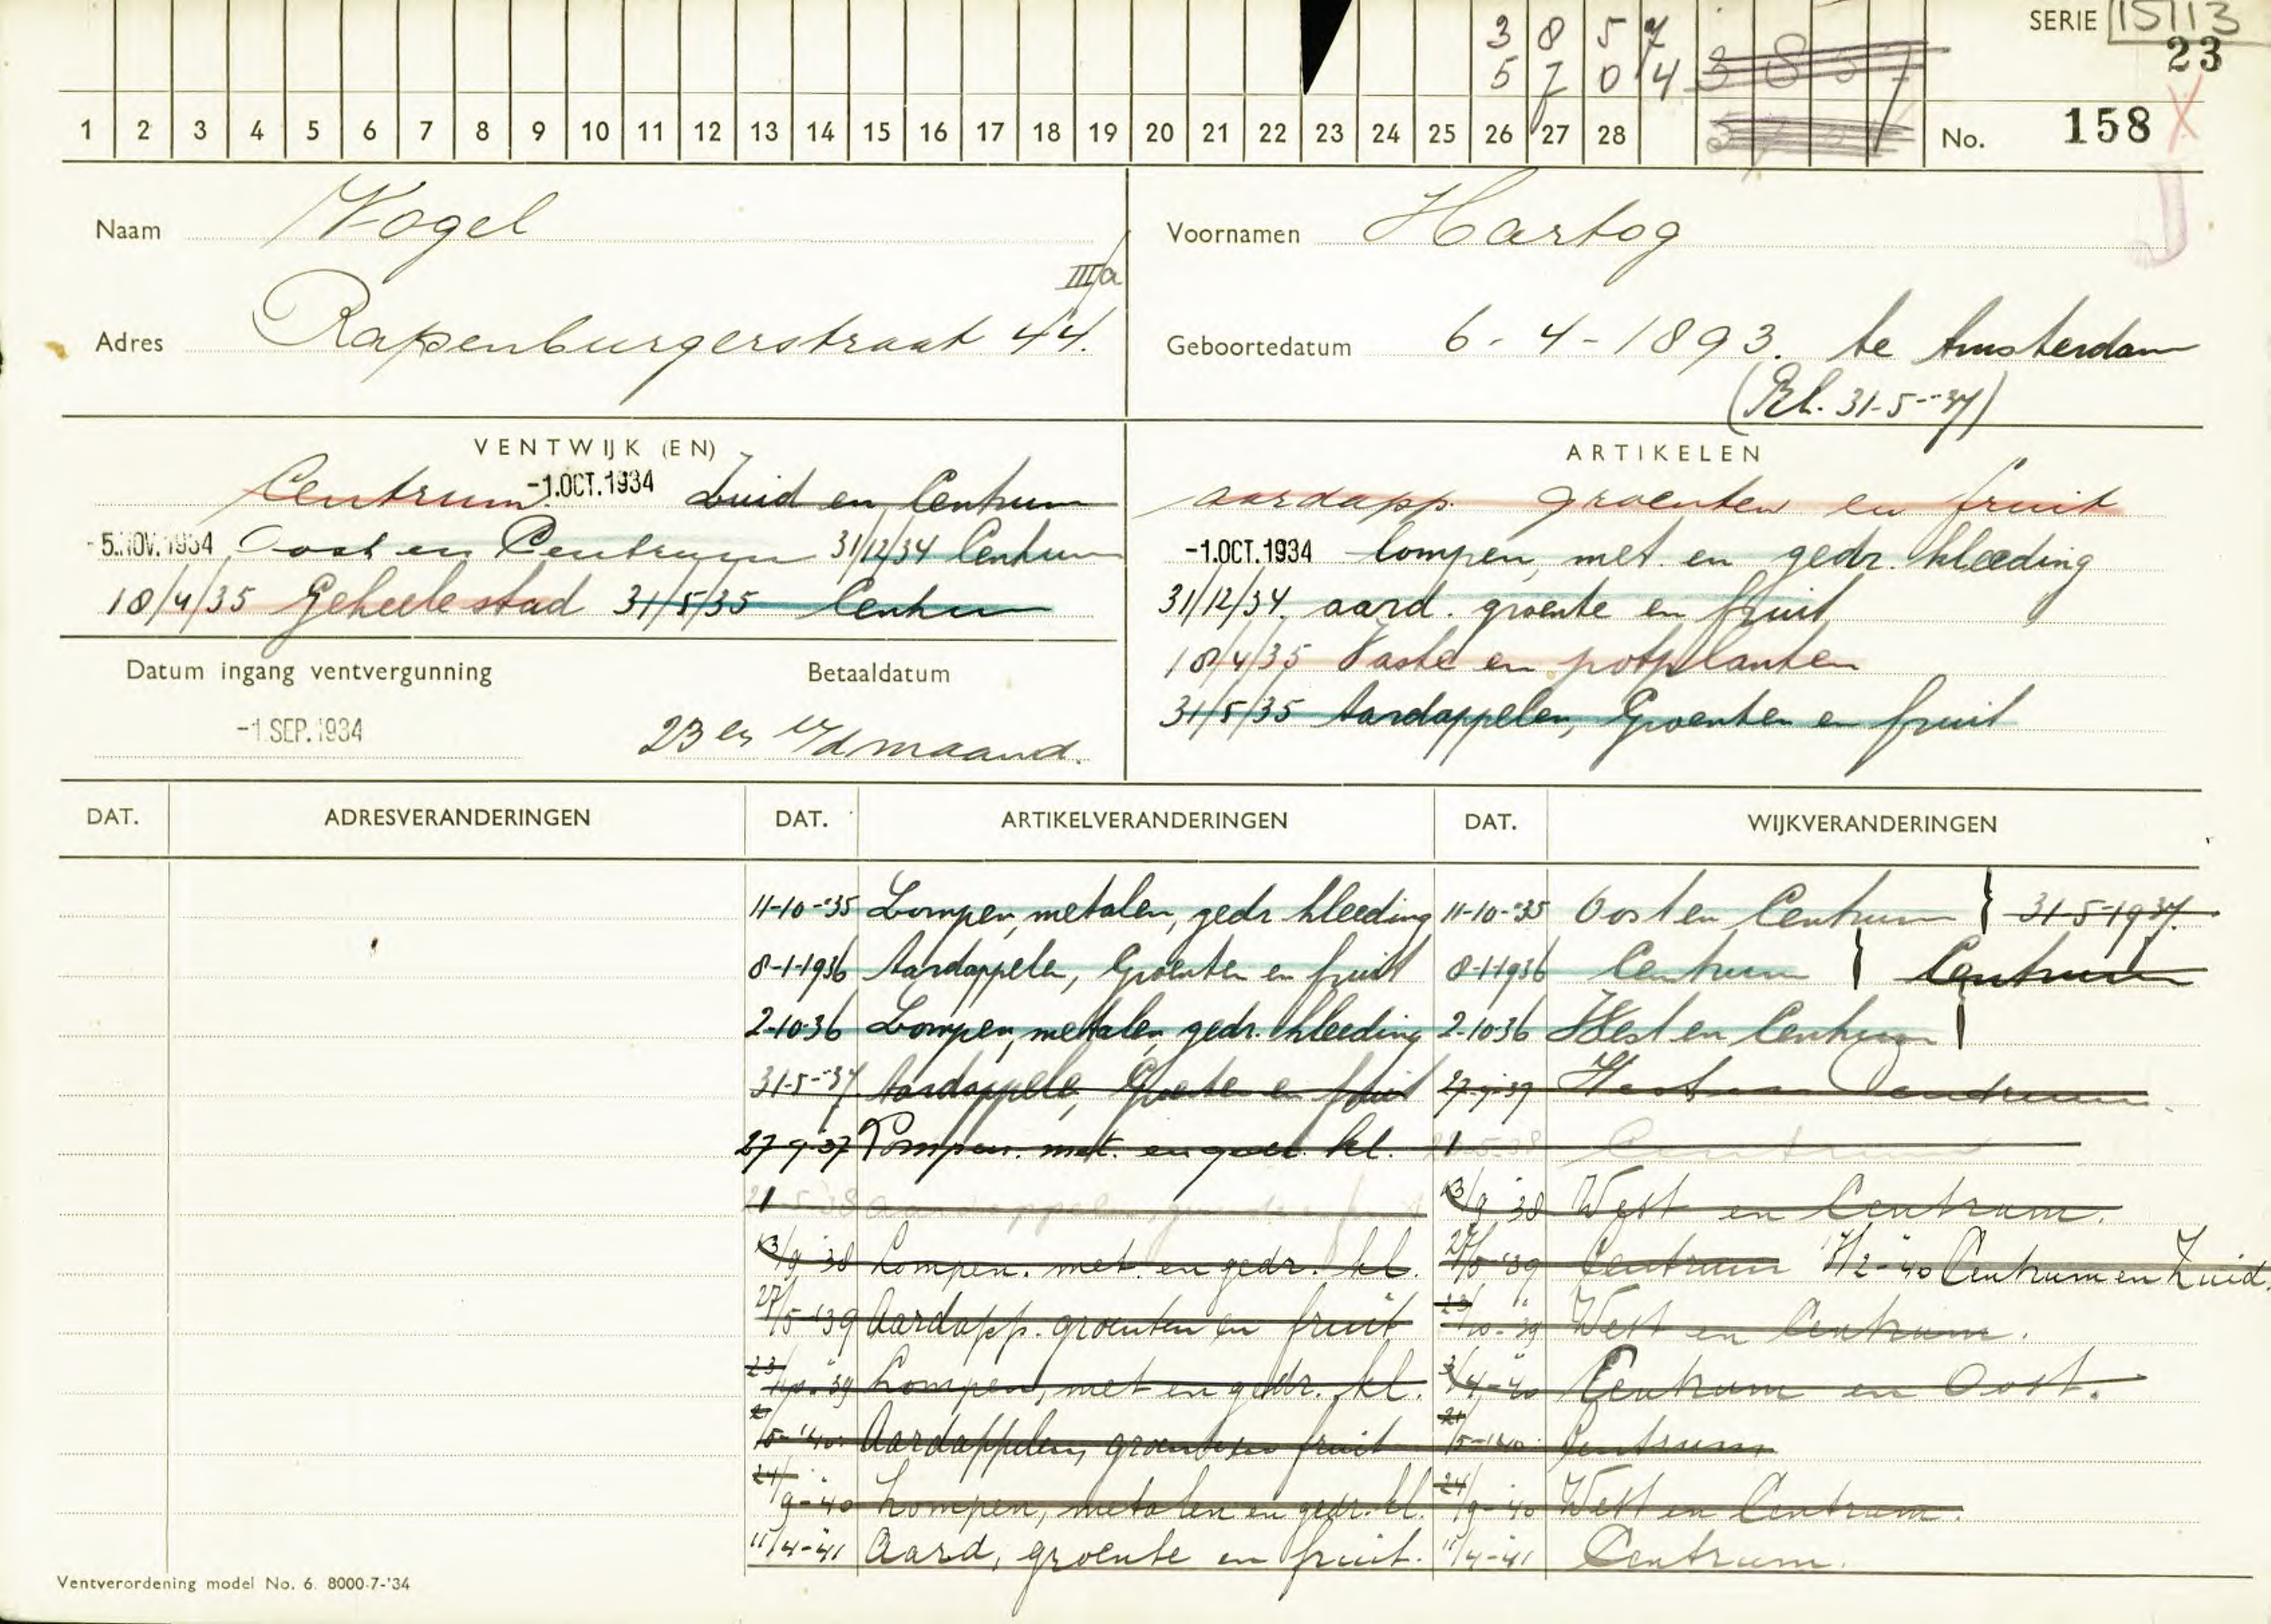 3 8 5 7 SERIE 15113
5 7 0 4 3 8 5 7 23
1 2 3 4 5 6 7 8 9 10 11 12 13 14 15 16 17 18 19 20 21 22 23 24 25 26 27 28 No. 158 X
Naam Vogel Voornamen Hartog J
IIIa
Adres Rapenburgerstraat 44. Geboortedatum 6-4-1893. te Amsterdam
31-5-'37)
VENTWIJK (EN) ARTIKELEN
Centrum -1.OCT.1934 Zuid en Centrum aardapp. groenten en fruit
-5.NOV.1934 Oost en Centrum 31/12/34 Centrum -1.OCT.1934 lompen, met. en gedr. kleeding
18/4/35 Geheele stad 31/5/35 Centrum 31/12/34 aard. groente en fruit
Datum ingang ventvergunning Betaaldatum 18/4/35 Vaste en potplanten
-1 SEP. 1934 23en v/d maand. 31/5/35 Aardappelen, Groenten en fruit
DAT. ADRESVERANDERINGEN DAT. ARTIKELVERANDERINGEN DAT. WIJKVERANDERINGEN
11-10-'35 Lompen, metalen, gedr kleeding 11-10-'35 Oost en Centrum } 31-5-1937.
8-1-1936 Aardappelen, Groenten en fruit 8-1-1936 Centrum } Centrum
2-10-36 Lompen, metalen, gedr. kleeding 2-10-36 West en Centrum }
31-5-'37 Aardappele, Groente en fruit 27-9-37 West en Centrum
27-9-37 Lompen. met. en gedr. kl. 21-5-38 Centrum
21-5-38 Aardappelen, groente fruit 13/9-38 West en Centrum.
13/9-38 Lompen. met. en gedr. kl. 27/5-'39 Centrum 17/2-'40 Centrum en Zuid.
27/5-'39 Aardapp. groenten en fruit 23/10-39 West en Centrum.
23/10-39 Lompen, met en gedr. kl. 3/4-40 Centrum en Oost.
21/5-'40 Aardappelen, groente en fruit 21/5-'40 Centrum
24/9-40 Lompen, metalen en gedr. kl. 24/9-40 West en Centrum.
11/4-41 Aard, groente en fruit. 11/4-41 Centrum.
Ventverordening model No. 6. 8000-7-'34